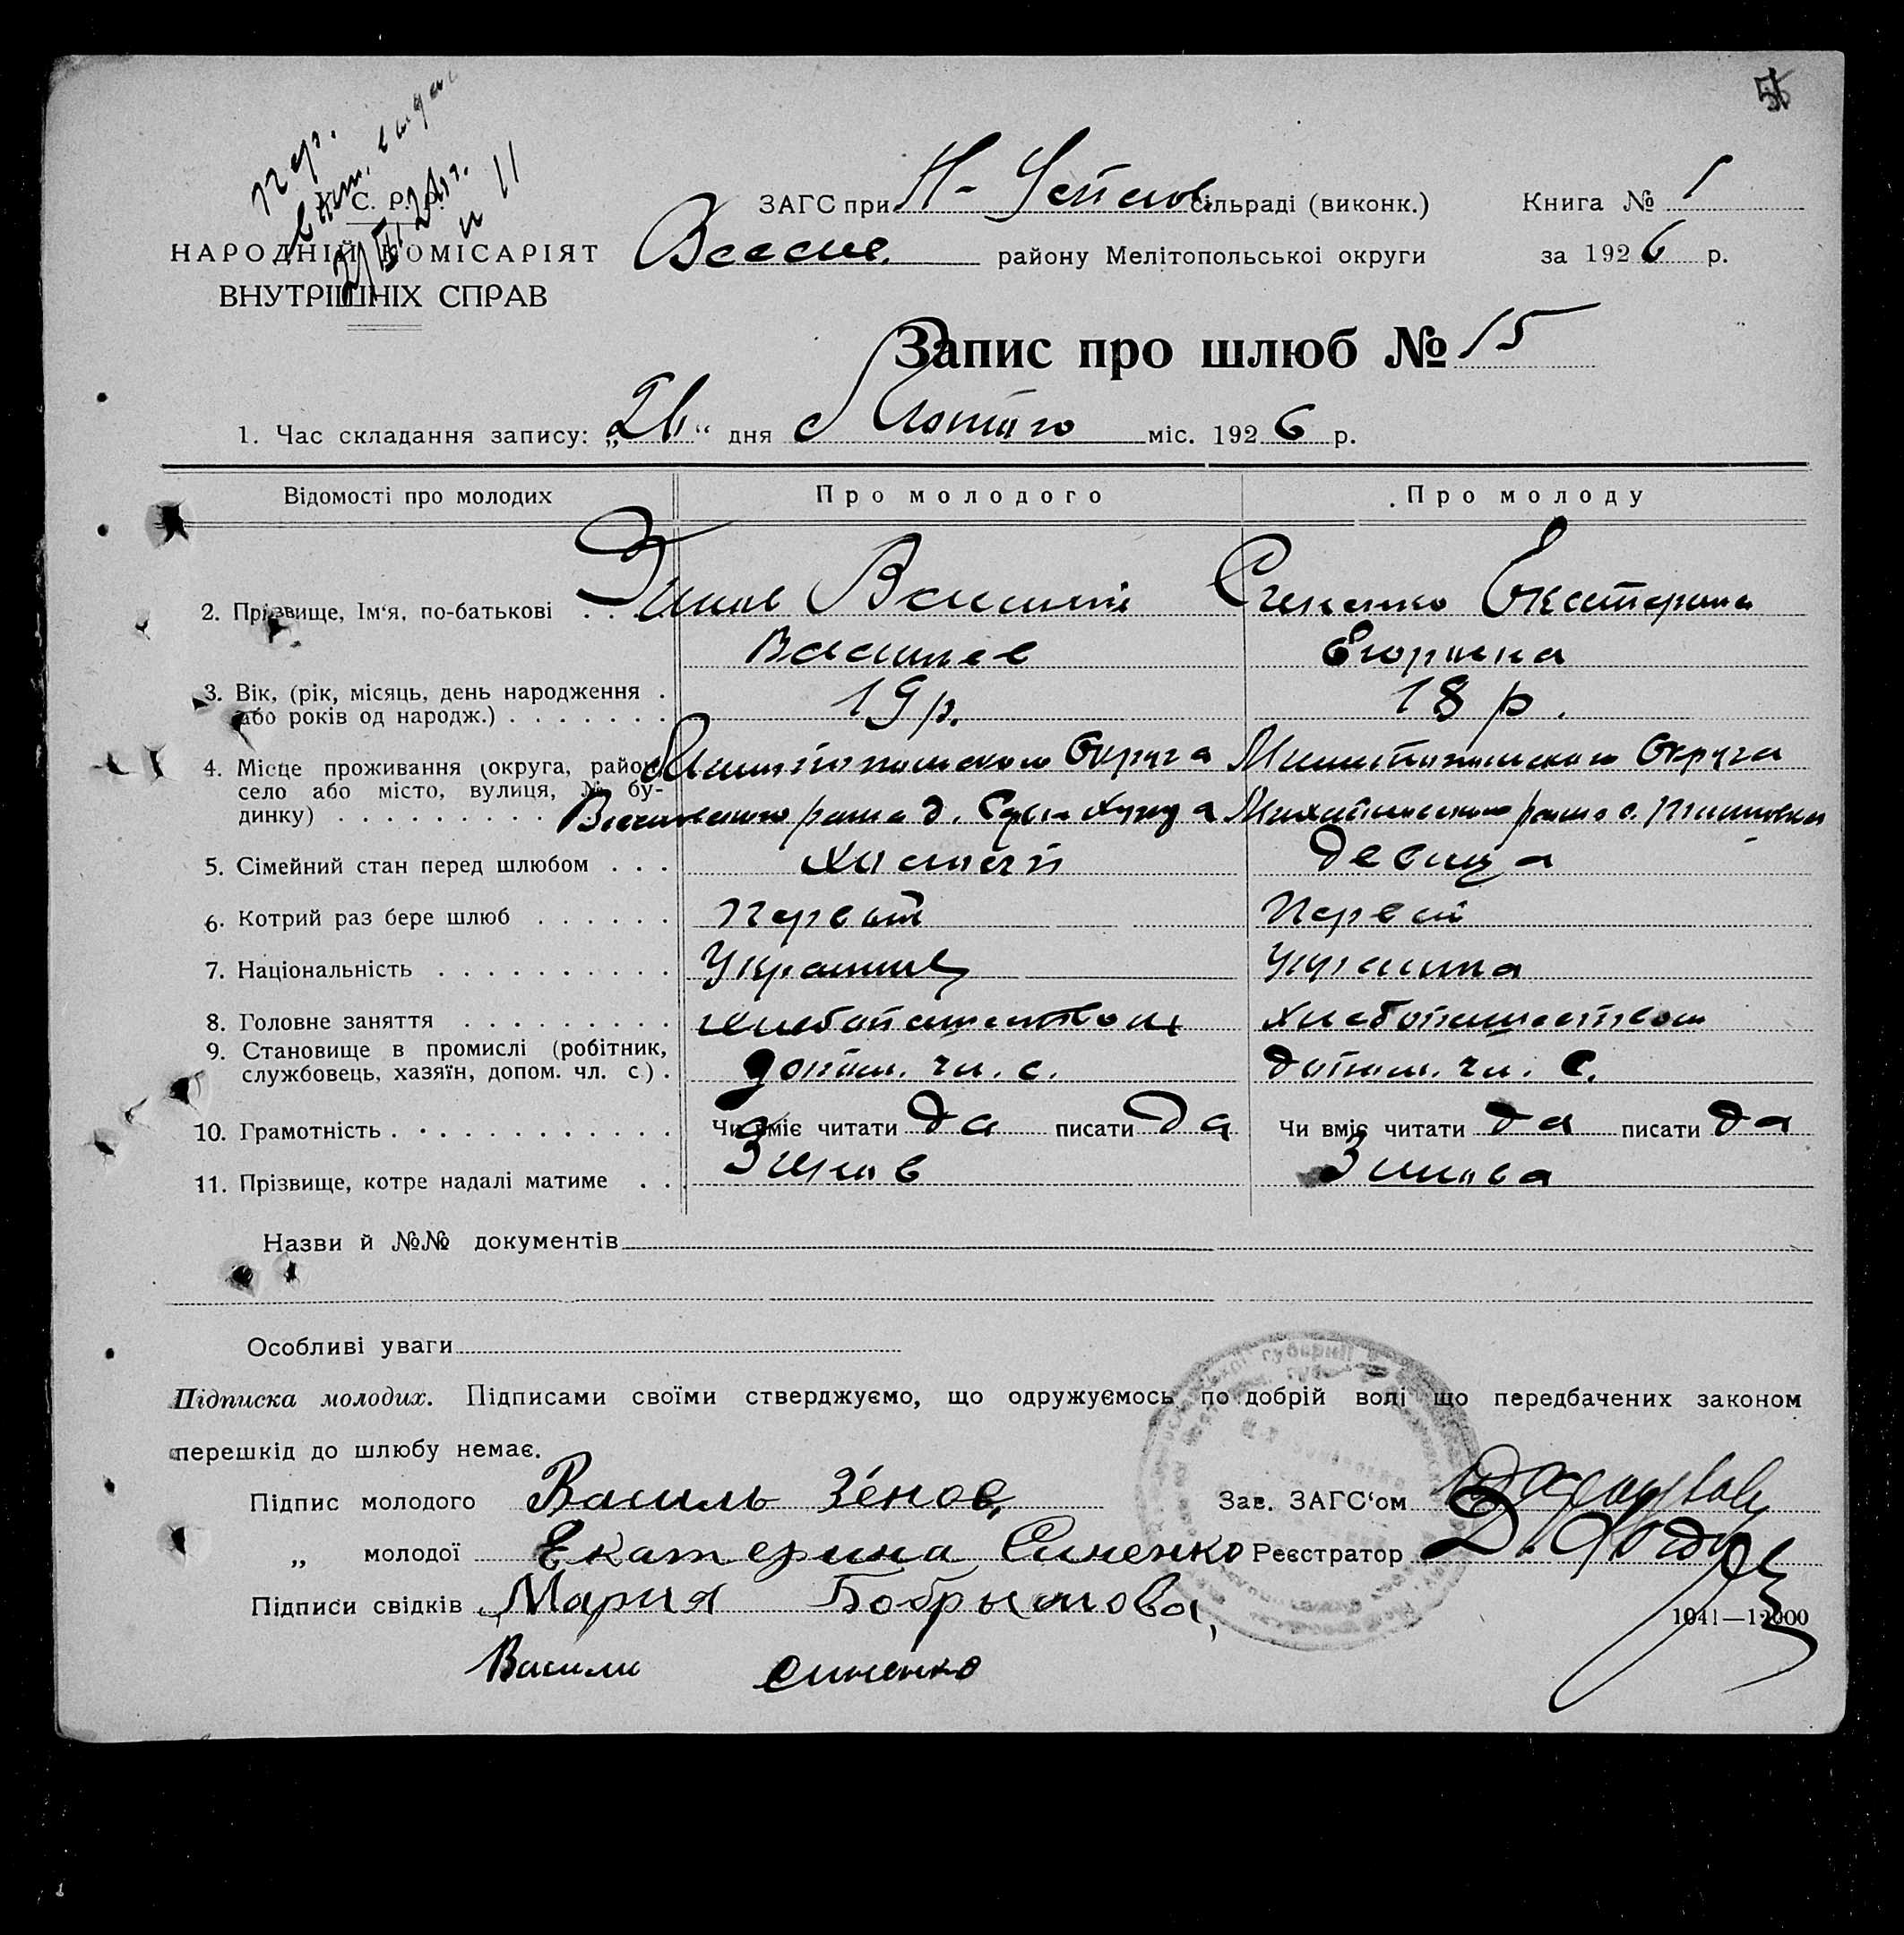 У. С. Р. Р.
НАРОДНІЙ КОМІСАРІЯТ
ВНУТРІШНІХ СПРАВ
ЗАГС при Н- сільраді (виконк.)
району Мелітопольської округи
Книга № 1
за 1926 р.
Запис про шлюб № 15
1. Час складання запису: „26“ дня Лютого міс. 1926 р.
Відомості про молодих Про молодого Про молоду
2. Прізвище, Ім‘я, по-батькові . . . Зинов Василий Синенко Екатерина
Василев Егоровна
3. Вік, (рік, місяць, день народження .
або років од народж.) . . . . . . . 19 р. 18 р.
4. Місце проживання (округа, район, Мелитопольского Округа Мелитопольского Округа
село або місто, вулиця, № бу-
динку) . . . . . . . . . района д. района с.
5. Сімейний стан перед шлюбом . . . Холостой девица
6. Котрий раз бере шлюб . . . . . . Первый Первый
7. Національність . . . . . . . . . . Украинец Украинка
8. Головне заняття . . . . . . . . . хлебопашеством хлебопашеством
9. Становище в промислі (робітник,
службовець, хазяїн, допом. чл. с.) . допом. чл. с. допом. чл. с.
10. Грамотність . . . . . . . . . . . . Чи вміє читати да писати да Чи вміє читати да писати да
11. Прізвище, котре надалі матиме . . . Зинов Зинова
Назви й №№ документів
Особливі уваги
Підписка молодих. Підписами своїми стверджуємо, що одружуємось по добрій волі що передбачених законом
перешкід до шлюбу немає.
Підпис молодого Василь Зенов Зав. ЗАГС‘ом
„ молодої Екатерина Синенко Реєстратор
Підписи свідків Мария Бобрышова
1041—12000
Васили Синенко